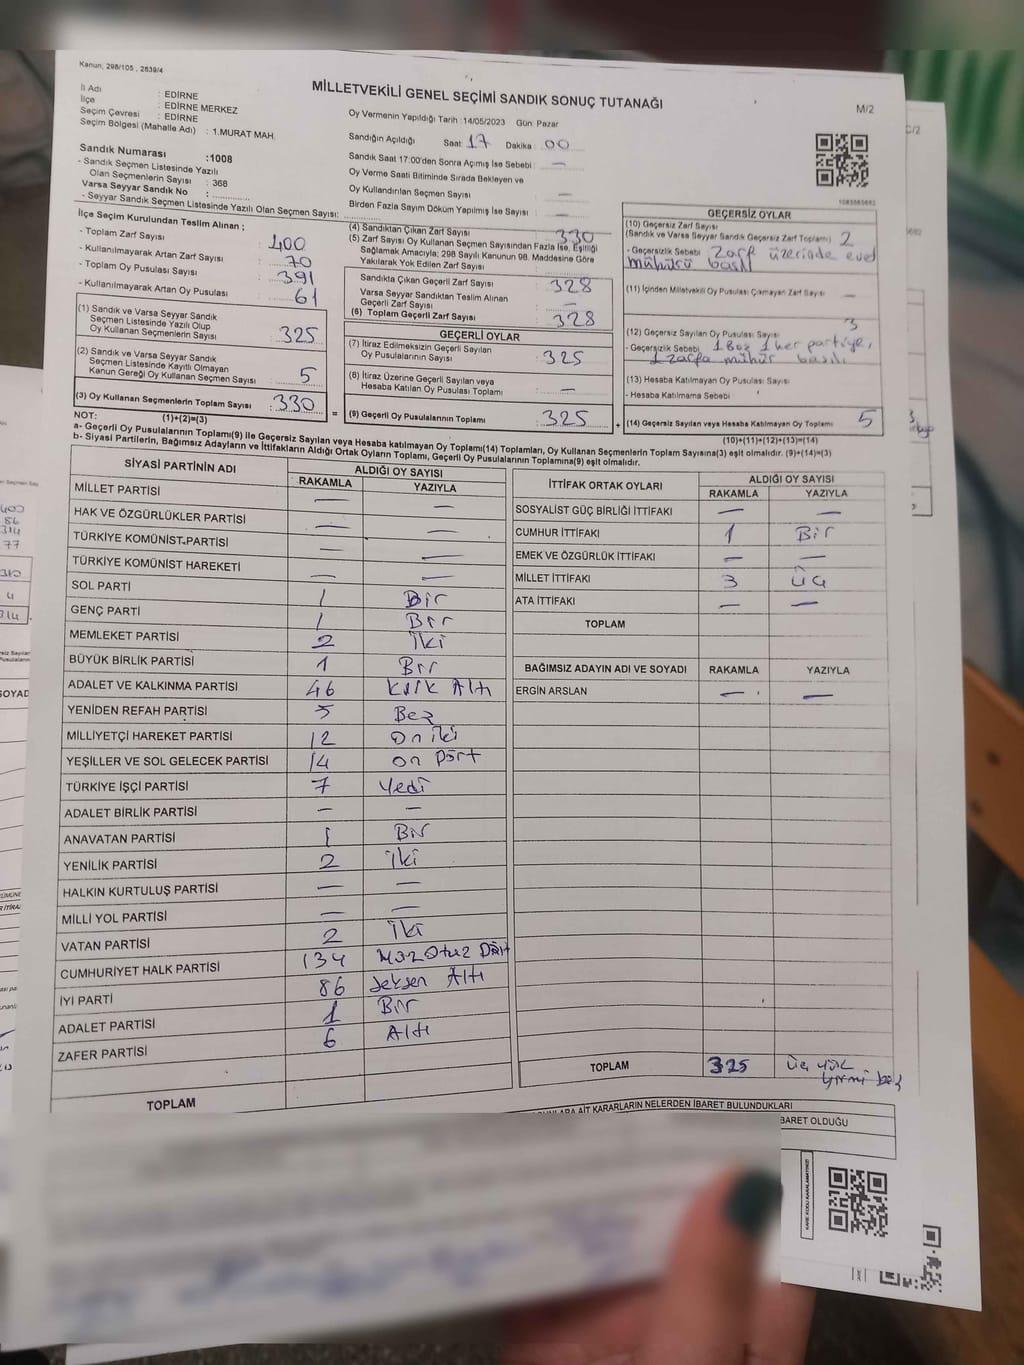 Kanun; 298/105 , 2839/4
MİLLETVEKİLİ GENEL SEÇİMİ SANDIK SONUÇ TUTANAĞI
M/2
İl Adı : EDİRNE
İlçe : EDİRNE MERKEZ
Seçim Çevresi : EDİRNE
Seçim Bölgesi (Mahalle Adı) : 1.MURAT MAH.
Oy Vermenin Yapıldığı Tarih :14/05/2023 Gün: Pazar
Sandığın Açıldığı Saat: 17 Dakika: 00
Sandık Saat 17:00'den Sonra Açımış İse Sebebi : —
Oy Verme Saati Bitiminde Sırada Bekleyen ve
Oy Kullandırılan Seçmen Sayısı : —
Birden Fazla Sayım Döküm Yapılmış İse Sayısı : —
Sandık Numarası :1008
- Sandık Seçmen Listesinde Yazılı
Olan Seçmenlerin Sayısı : 368
Varsa Seyyar Sandık No :
- Seyyar Sandık Seçmen Listesinde Yazılı Olan Seçmen Sayısı:
İlçe Seçim Kurulundan Teslim Alınan ;
- Toplam Zarf Sayısı : 400
- Kullanılmayarak Artan Zarf Sayısı : 70
- Toplam Oy Pusulası Sayısı : 391
- Kullanılmayarak Artan Oy Pusulası : 61
(1) Sandık ve Varsa Seyyar Sandık
Seçmen Listesinde Yazılı Olup
Oy Kullanan Seçmenlerin Sayısı : 325
(2) Sandık ve Varsa Seyyar Sandık
Seçmen Listesinde Kayıtlı Olmayan
Kanun Gereği Oy Kullanan Seçmen Sayısı : 5
(3) Oy Kullanan Seçmenlerin Toplam Sayısı : 330
(4) Sandıktan Çıkan Zarf Sayısı : 330
(5) Zarf Sayısı Oy Kullanan Seçmen Sayısından Fazla İse, Eşitliği
Sağlamak Amacıyla; 298 Sayılı Kanunun 98. Maddesine Göre
Yakılarak Yok Edilen Zarf Sayısı :
Sandıkta Çıkan Geçerli Zarf Sayısı : 328
Varsa Seyyar Sandıktan Teslim Alınan
Geçerli Zarf Sayısı : —
(6) Toplam Geçerli Zarf Sayısı : 328
GEÇERLİ OYLAR
(7) İtiraz Edilmeksizin Geçerli Sayılan
Oy Pusulalarının Sayısı : 325
(8) İtiraz Üzerine Geçerli Sayılan veya
Hesaba Katılan Oy Pusulası Toplamı : —
= (9) Geçerli Oy Pusulalarının Toplamı : 325 +
1083565692
GEÇERSİZ OYLAR
(10) Geçersiz Zarf Sayısı
(Sandık ve Varsa Seyyar Sandık Geçersiz Zarf Toplamı) 2
- Geçersizlik Sebebi Zarf üzerinde evet
mühürü basılı
(11) İçinden Milletvekili Oy Pusulası Çıkmayan Zarf Sayısı : —
(12) Geçersiz Sayılan Oy Pusulası Sayısı 3
- Geçersizlik Sebebi 1 Boş 1 her partiye,
1 zarfa mühür basılı
(13) Hesaba Katılmayan Oy Pusulası Sayısı
- Hesaba Katılmama Sebebi
(14) Geçersiz Sayılan veya Hesaba Katılmayan Oy Toplamı 5
NOT: (1)+(2)=(3)
(10)+(11)+(12)+(13)=(14)
a- Geçerli Oy Pusulalarının Toplamı(9) ile Geçersiz Sayılan veya Hesaba katılmayan Oy Toplamı(14) Toplamları, Oy Kullanan Seçmenlerin Toplam Sayısına(3) eşit olmalıdır. (9)+(14)=(3)
b- Siyasi Partilerin, Bağımsız Adayların ve İttifakların Aldığı Ortak Oyların Toplamı, Geçerli Oy Pusulalarının Toplamına(9) eşit olmalıdır.
SİYASİ PARTİNİN ADI ALDIĞI OY SAYISI
RAKAMLA YAZIYLA
MİLLET PARTİSİ — —
HAK VE ÖZGÜRLÜKLER PARTİSİ — —
TÜRKİYE KOMÜNİST PARTİSİ — —
TÜRKİYE KOMÜNİST HAREKETİ — —
SOL PARTİ 1 Bir
GENÇ PARTİ 1 Bir
MEMLEKET PARTİSİ 2 İki
BÜYÜK BİRLİK PARTİSİ 1 Bir
ADALET VE KALKINMA PARTİSİ 46 Kırk Altı
YENİDEN REFAH PARTİSİ 5 Beş
MİLLİYETÇİ HAREKET PARTİSİ 12 On iki
YEŞİLLER VE SOL GELECEK PARTİSİ 14 on Dört
TÜRKİYE İŞÇİ PARTİSİ 7 Yedi
ADALET BİRLİK PARTİSİ — —
ANAVATAN PARTİSİ 1 Bir
YENİLİK PARTİSİ 2 İki
HALKIN KURTULUŞ PARTİSİ — —
MİLLİ YOL PARTİSİ — —
VATAN PARTİSİ 2 İki
CUMHURİYET HALK PARTİSİ 134 Otuz Dört
İYİ PARTİ 86 Seksen Altı
ADALET PARTİSİ 1 Bir
ZAFER PARTİSİ 6 Altı
TOPLAM
İTTİFAK ORTAK OYLARI ALDIĞI OY SAYISI
RAKAMLA YAZIYLA
SOSYALİST GÜÇ BİRLİĞİ İTTİFAKI — —
CUMHUR İTTİFAKI 1 Bir
EMEK VE ÖZGÜRLÜK İTTİFAKI — —
MİLLET İTTİFAKI 3 Üç
ATA İTTİFAKI — —
TOPLAM
BAĞIMSIZ ADAYIN ADI VE SOYADI RAKAMLA YAZIYLA
ERGİN ARSLAN — —
TOPLAM 325 üç yüz
yirmi beş
AİT KARARLARIN NELERDEN İBARET BULUNDUKLARI
BARET OLDUĞU
KARE KODU KARALAMAYINIZ!